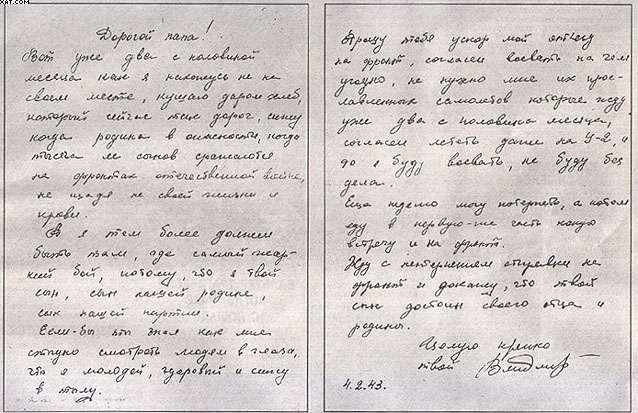 XAT.COM
Дорогой папа!
Вот уже два с половиной
месяца как я нахожусь не на
своем месте, кушаю даром хлеб,
который сейчас так дорог, сижу
когда родина в опасности, когда
тысячи ее сынов сражаются
на фронтах отечественной войны,
не щадя не своей жизни и
крови.
А я тем более должен
быть там, где самый жар-
кий бой, потому, что я твой
сын, сын нашей родине,
сын нашей партии.
Если-бы ты знал как мне
стыдно смотреть людям в глаза,
что я молодой, здоровый и сижу
в тылу.
Прошу тебя ускор мой отъезд
на фронт, согласен воевать на чем
угодно, не нужно мне их прос-
лавленных самолетов которые жду
уже два с половина месяца,
согласен летать даже на У-2, и
до я буду воевать, не буду без
дела.
Еще неделю могу потерпеть, а потом
еду в первую-же часть какую
встречу и на фронт.
Жду с нетерпением отправки на
фронт и докажу, что твой
сын достоин своего отца и
родины.
Целую крепко
твой Владимир
4.2.43.